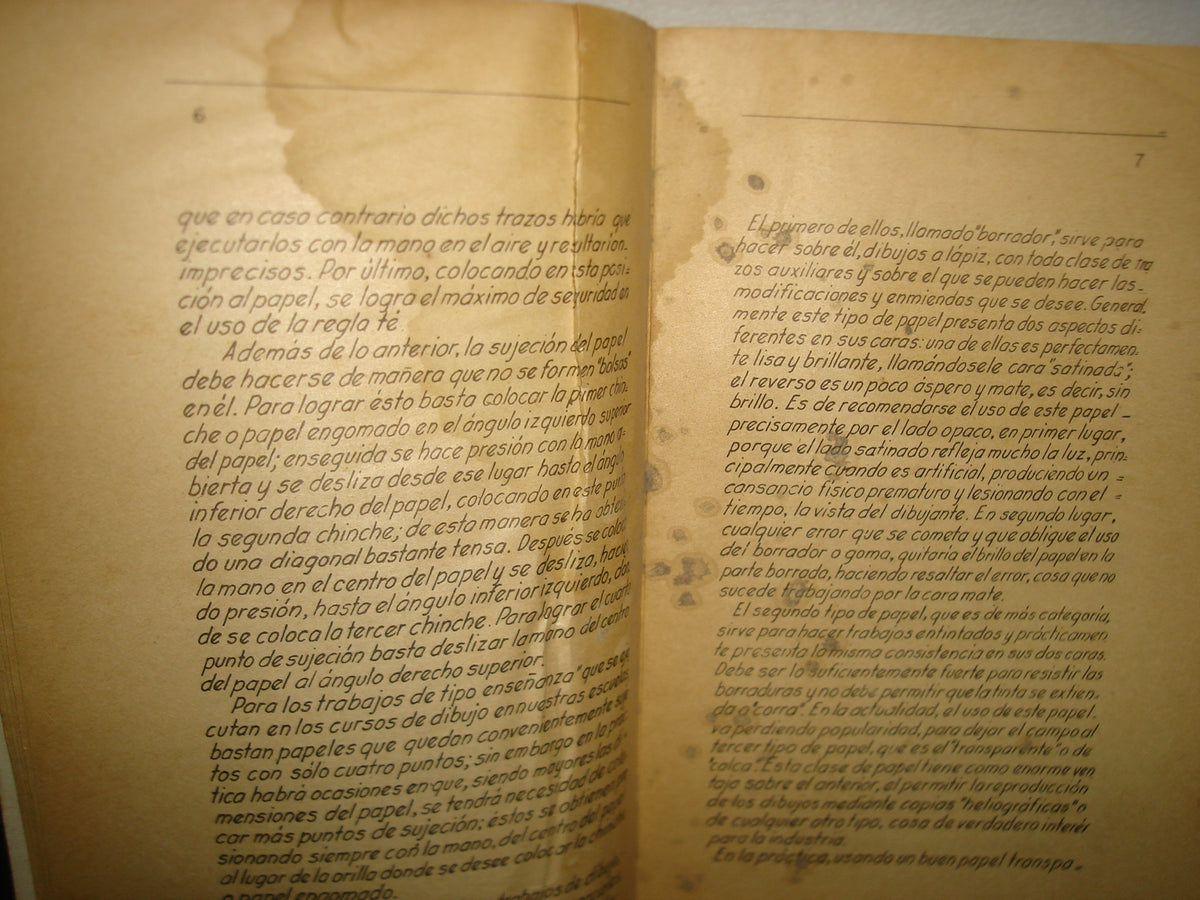 6
que en caso contrario dichos trazos habría que
ejecutarlos con la mano en el aire y resultarían
imprecisos. Por último, colocando en esta posi=
ción al papel, se logra el máximo de seguridad en
el uso de la regla té.
Además de lo anterior, la sujeción del papel
debe hacerse de mañera que no se formen "bolsas"
en él. Para lograr ésto basta colocar la primer chin=
che o papel engomado en el ángulo izquierdo superior
del papel; enseguida se hace presión con la mano a=
bierta y se desliza desde ese lugar hasta el ángulo
inferior derecho del papel, colocando en este punto
la segunda chinche; de esta manera se ha obteni
do una diagonal bastante tensa. Después se coloca
la mano en el centro del papel y se desliza, hacien
do presión, hasta el ángulo inferior izquierdo, don
de se coloca la tercer chinche. Para lograr el cuarto
punto de sujeción basta deslizar la mano del centro
del papel al ángulo derecho superior.
Para los trabajos de tipo enseñanza" que se eje
cutan en los cursos de dibujo en nuestras escuelas
bastan papeles que quedan convenientemente suje
tos con sólo cuatro puntos; sin embargo en la prác
tica habrá ocasiones en que, siendo mayores las di-
mensiones del papel, se tendrá necesidad de colo
car más puntos de sujeción; éstos se obtienen pre
sionando siempre con la mano, del centro del papel
al lugar de la orilla donde se desee colocar la chinche
o papel engomado.
trabajos de dibujo,
7
El primero de ellos, llamado "borrador", sirve para
hacer sobre él, dibujos a lápiz, con toda clase de tra
zos auxiliares y sobre el que se pueden hacer las_
modificaciones y enmiendas que se desee. General_
mente este tipo de papel presenta dos aspectos di-
ferentes en sus caras: una de ellas es perfectamen_
te lisa y brillante, llamándosele cara "satinada";
el reverso es un póco áspero y mate, es decir, sin
brillo. Es de recomendarse el uso de este papel _
precisamente por el lado opaco, en primer lugar,
porque el lado satinado refleja mucho la luz, prin=
cipalmente cuando es artificial, produciendo un =
cansancio físico prematuro y lesionando con el =
tiempo, la vista del dibujante. En segundo lugar,
cualquier error que se cometa y que oblique el uso
del borrador o goma, quitaría el brillo del papel en la
parte borrada, haciendo resaltar el error, cosa que no
sucede trabajando por la cara mate.
El segundo tipo de papel, que es de más categoría,
sirve para hacer trabajos entintados y prácticamen
te presenta la misma consistencia en sus dos caras.
Debe ser lo suficientemente fuerte para resistir las
borraduras y no debe permitir que la tinta se extien_
da o "corra". En la actualidad, el uso de este papel_
va perdiendo popularidad, para dejar el campo al
tercer tipo de papel, que es el "transparente" o de
"calca". Esta clase de papel tiene como enorme ven
taja sobre el anterior, el permitir la reproducción
de los dibujos mediante copias "heliográficas" o
de cualquier otro tipo, cosa de verdadero interés
para la industria.
En la práctica, usando un buen papel transpa_